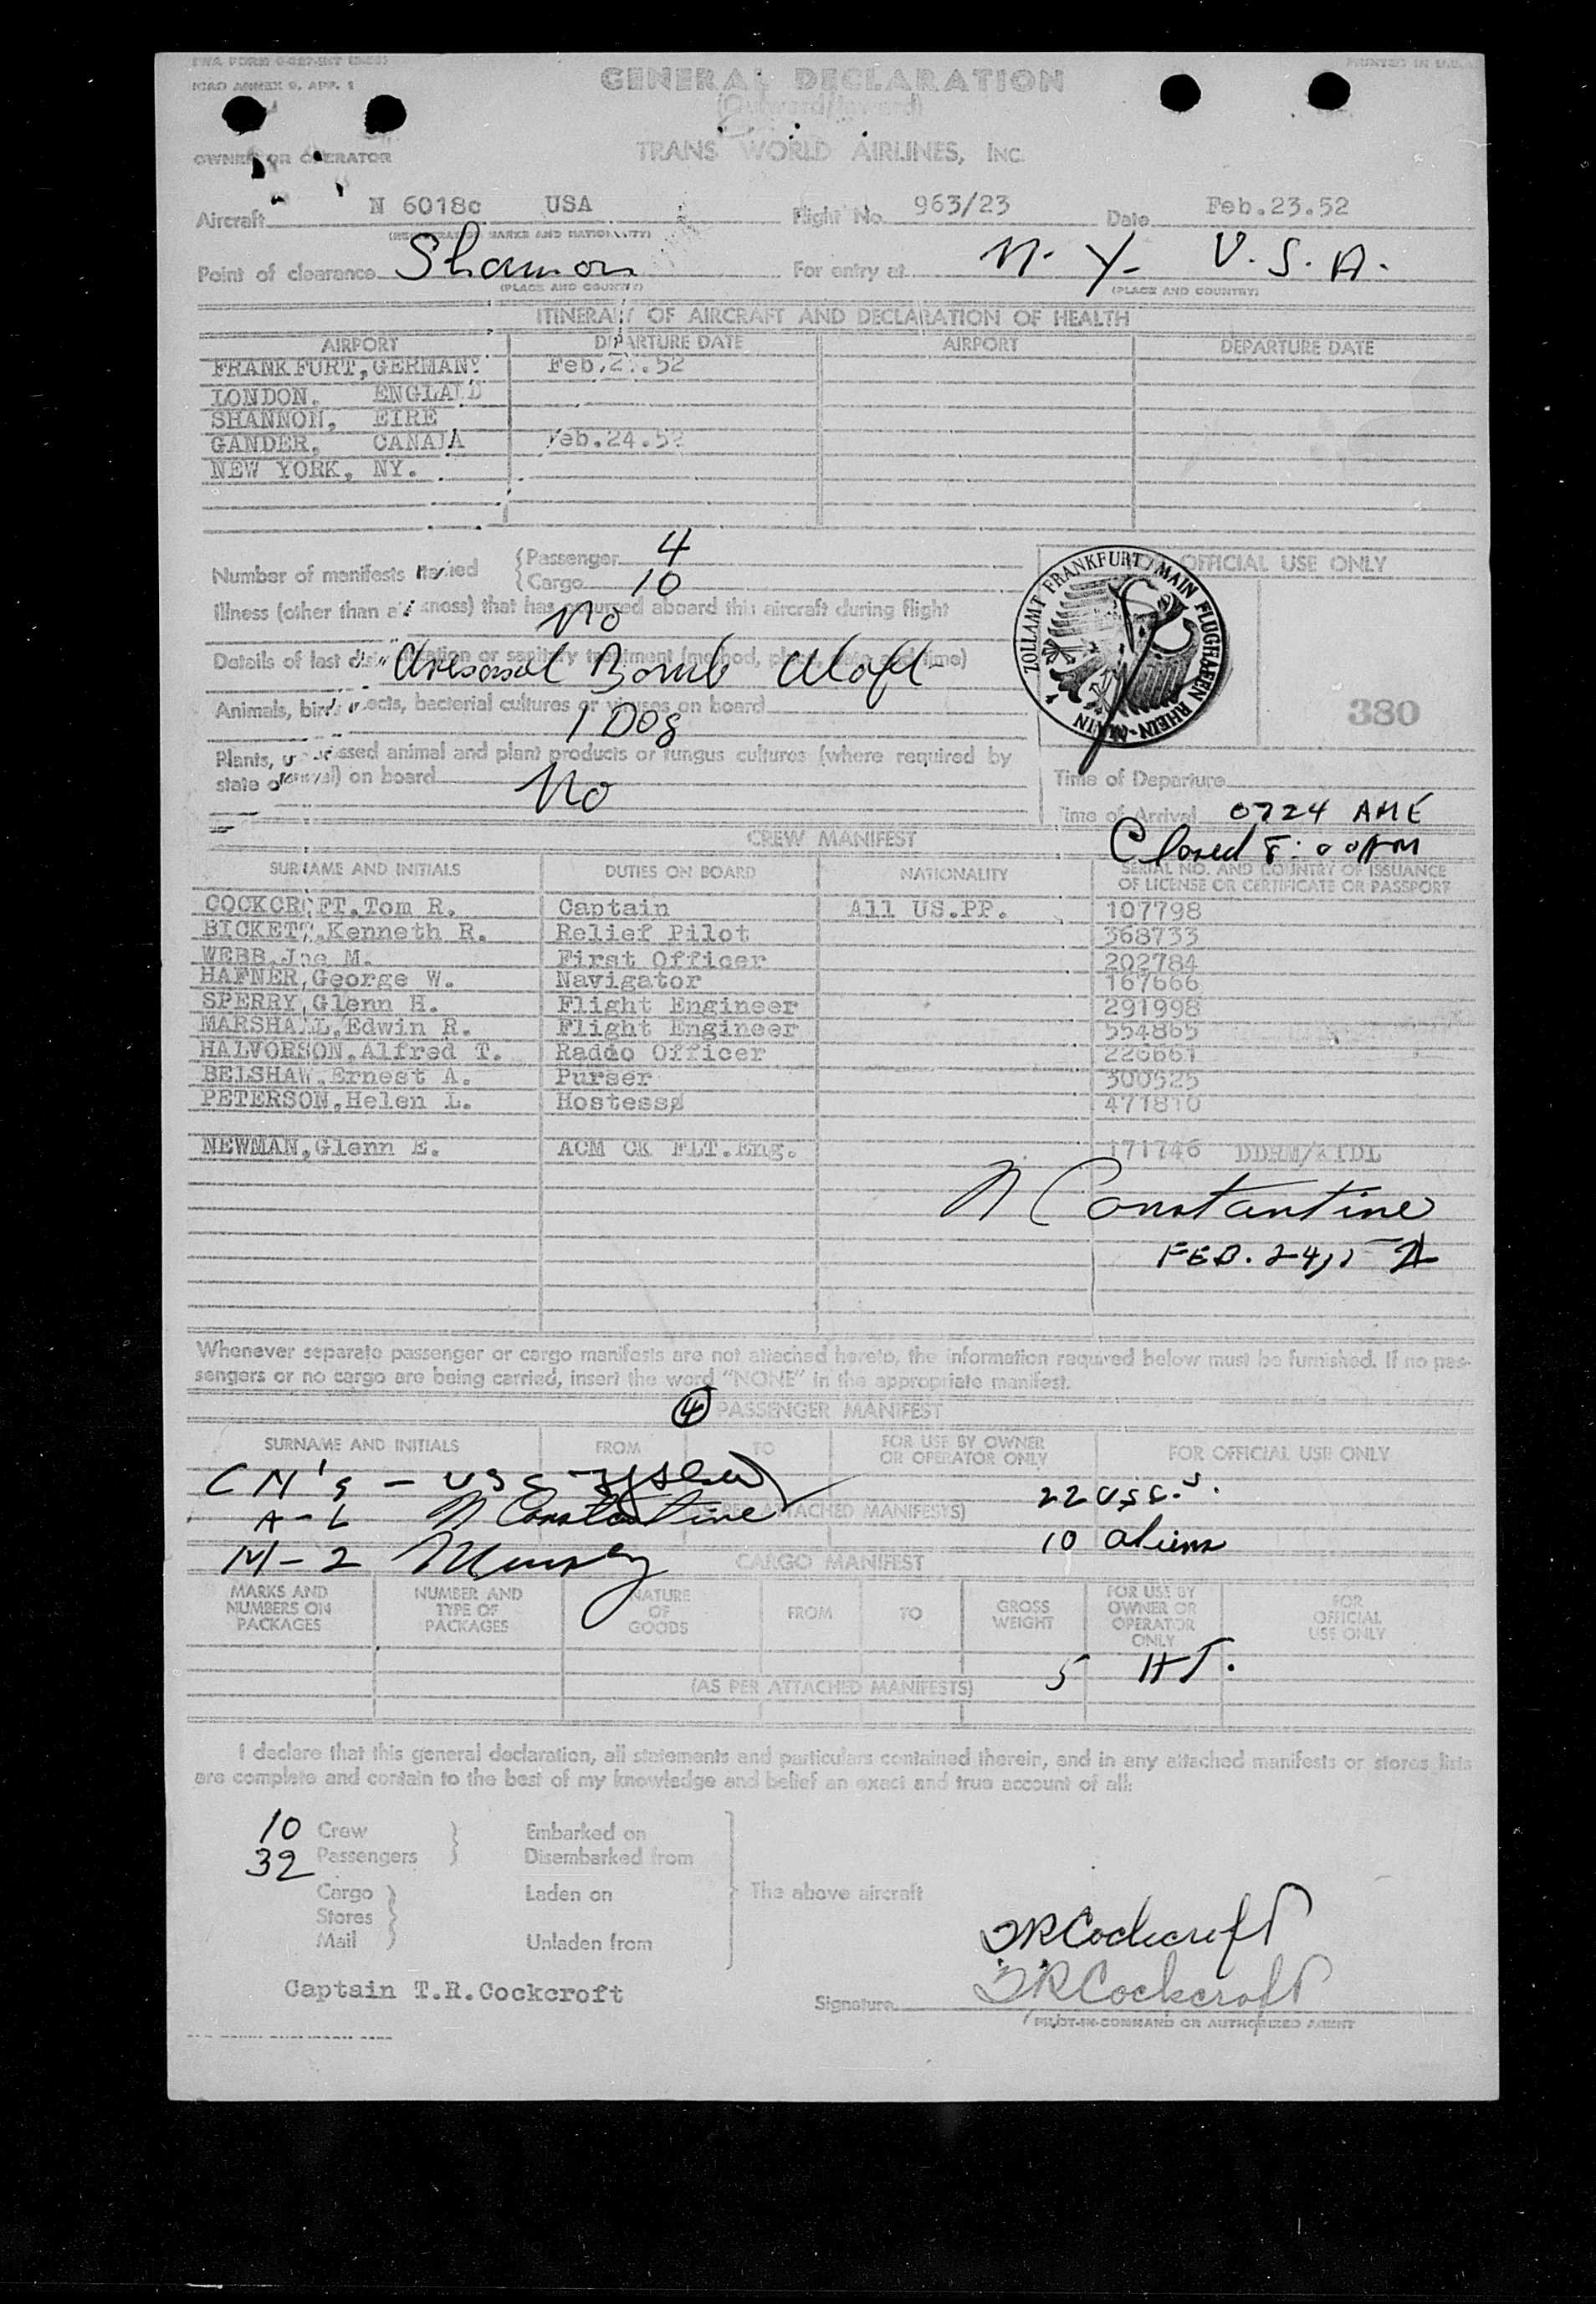 ICAO ANNEX 9, APP. 1
GENERAL DECLARATION
(Outward/Inward)
OWNER OR OPERATOR
TRANS WORLD AIRLINES, INC.
Aircraft N 6018c USA Flight No. 963/23 Date Feb.23.52
(REGISTRATION MARKS AND NATIONALITY)
Point of clearance Shannon For entry at N. Y. U.S.A.
(PLACE AND COUNTRY) (PLACE AND COUNTRY)
ITINERARY OF AIRCRAFT AND DECLARATION OF HEALTH
AIRPORT DEPARTURE DATE AIRPORT DEPARTURE DATE
FRANKFURT, GERMANY Feb.23.52
LONDON, ENGLAND
SHANNON, EIRE
GANDER, CANADA Feb.24.52
NEW YORK, NY.
Number of manifests carried
Passenger 4
Cargo 10
OFFICIAL USE ONLY
ZOLLAMT FRANKFURT/MAIN FLUGHAFEN RHEIN-MAIN
Illness (other than airsickness) that has occurred aboard this aircraft during flight
No
Details of last disinsectization or sanitary treatment (method, place, date and time)
Aresosol Bomb Aloft
Animals, birds, insects, bacterial cultures or viruses on board
1 Dog
380
Plants, unprocessed animal and plant products or fungus cultures (where required by
state of arrival) on board
No
Time of Departure
Time of Arrival 0724 AME
Closed 8:00AM
CREW MANIFEST
SURNAME AND INITIALS DUTIES ON BOARD NATIONALITY SERIAL NO. AND COUNTRY OF ISSUANCE
OF LICENSE OR CERTIFICATE OR PASSPORT
COCKCROFT,Tom R. Captain All US.PP. 107798
BICKETT,Kenneth R. Relief Pilot 368733
WEBB,Joe M. First Officer 202784
HAFNER,George W. Navigator 167666
SPERRY,Glenn H. Flight Engineer 291998
MARSHALL,Edwin R. Flight Engineer 554865
HALVORSON,Alfred T. Raddo Officer 226661
BELSHAW,Ernest A. Purser 300525
PETERSON,Helen L. Hostess 471810
NEWMAN,Glenn E. ACM CK FLT.Eng. 171746
N Constantine
FEB. 24, 52
Whenever separate passenger or cargo manifests are not attached hereto, the information required below must be furnished. If no pas-
sengers or no cargo are being carried, insert the word "NONE" in the appropriate manifest.
4 PASSENGER MANIFEST
SURNAME AND INITIALS FROM TO FOR USE BY OWNER
OR OPERATOR ONLY FOR OFFICIAL USE ONLY
CM's - USC 22 USC.s.
A-L N Constantine (AS PER ATTACHED MANIFESTS)
10 aliens
M-2 Murphy
CARGO MANIFEST
MARKS AND
NUMBERS ON
PACKAGES
NUMBER AND
TYPE OF
PACKAGES
NATURE
OF
GOODS
FROM TO GROSS
WEIGHT
FOR USE BY
OWNER OR
OPERATOR
ONLY
FOR
OFFICIAL
USE ONLY
5 HT.
(AS PER ATTACHED MANIFESTS)
I declare that this general declaration, all statements and particulars contained therein, and in any attached manifests or stores lists
are complete and contain to the best of my knowledge and belief an exact and true account of all:
10 Crew Embarked on
32 Passengers Disembarked from
Cargo Laden on The above aircraft
Stores
Mail Unladen from
TRCockcroft
Captain T.R.Cockcroft Signature TRCockcroft
PILOT-IN-COMMAND OR AUTHORIZED AGENT